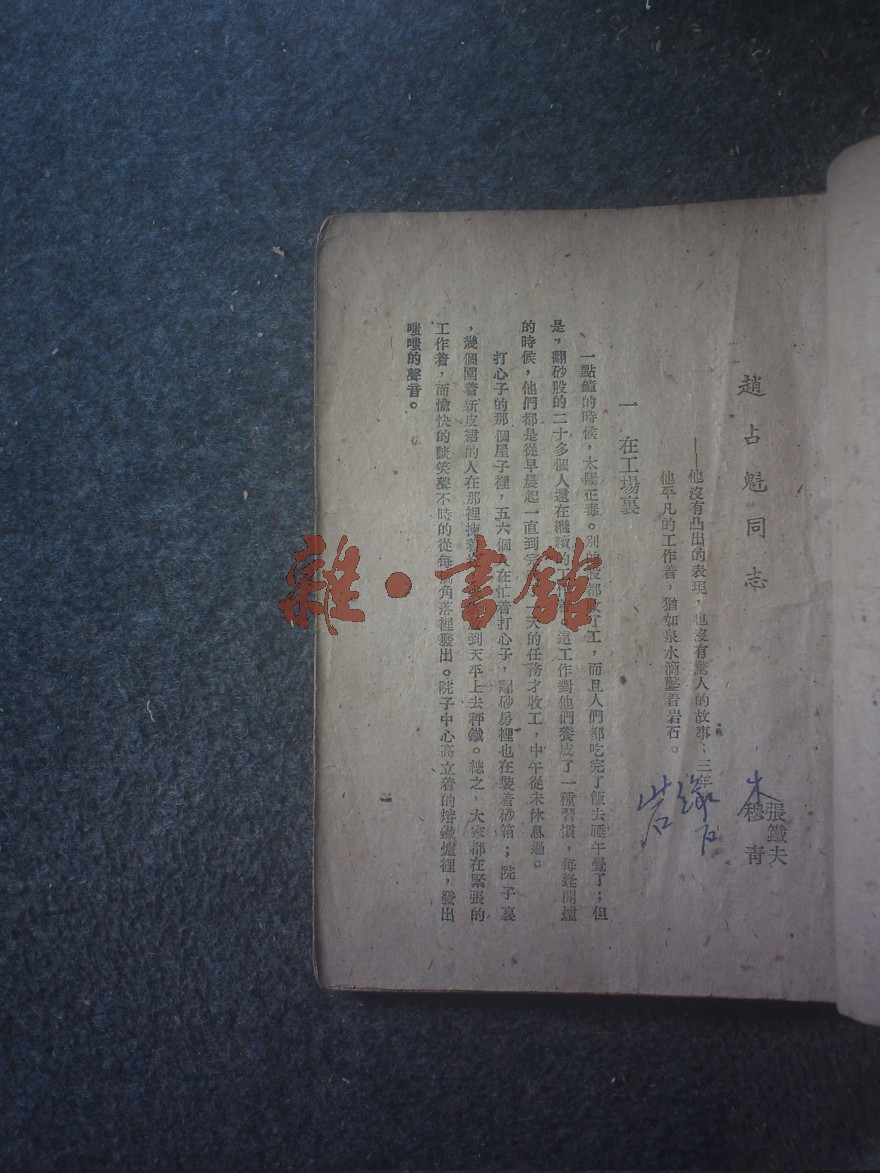 趙占魁同志
張鐵夫
穆青
——他沒有凸出的表現，也沒有驚人的故事；三年
他平凡的工作着，猶如泉水滴鑿着岩石。
一 在工場裏
一點鐘的時候，太陽正毒。別的股都收了工，而且人們都吃完了飯去睡午覺了；但
是，翻砂股的二十多個人還在繼續的工作着。這工作對他們養成了一種習慣，每逢開爐
的時候，他們都是從早晨起一直到完一天的任務才收工，中午從未休息過。
打心子的那個屋子裡，五六個人在忙着打心子，翻砂房裡也在裝着砂箱；院子裏
，幾個圍着新皮裙的人在那裡到天平上去秤鐵。總之，大家都在緊張的
工作着，而愉快的談笑聲不時的從每個角落裡發出。院子中心高立着的熔鐵爐裡，發出
嗤嗤的聲音。
雜·書館